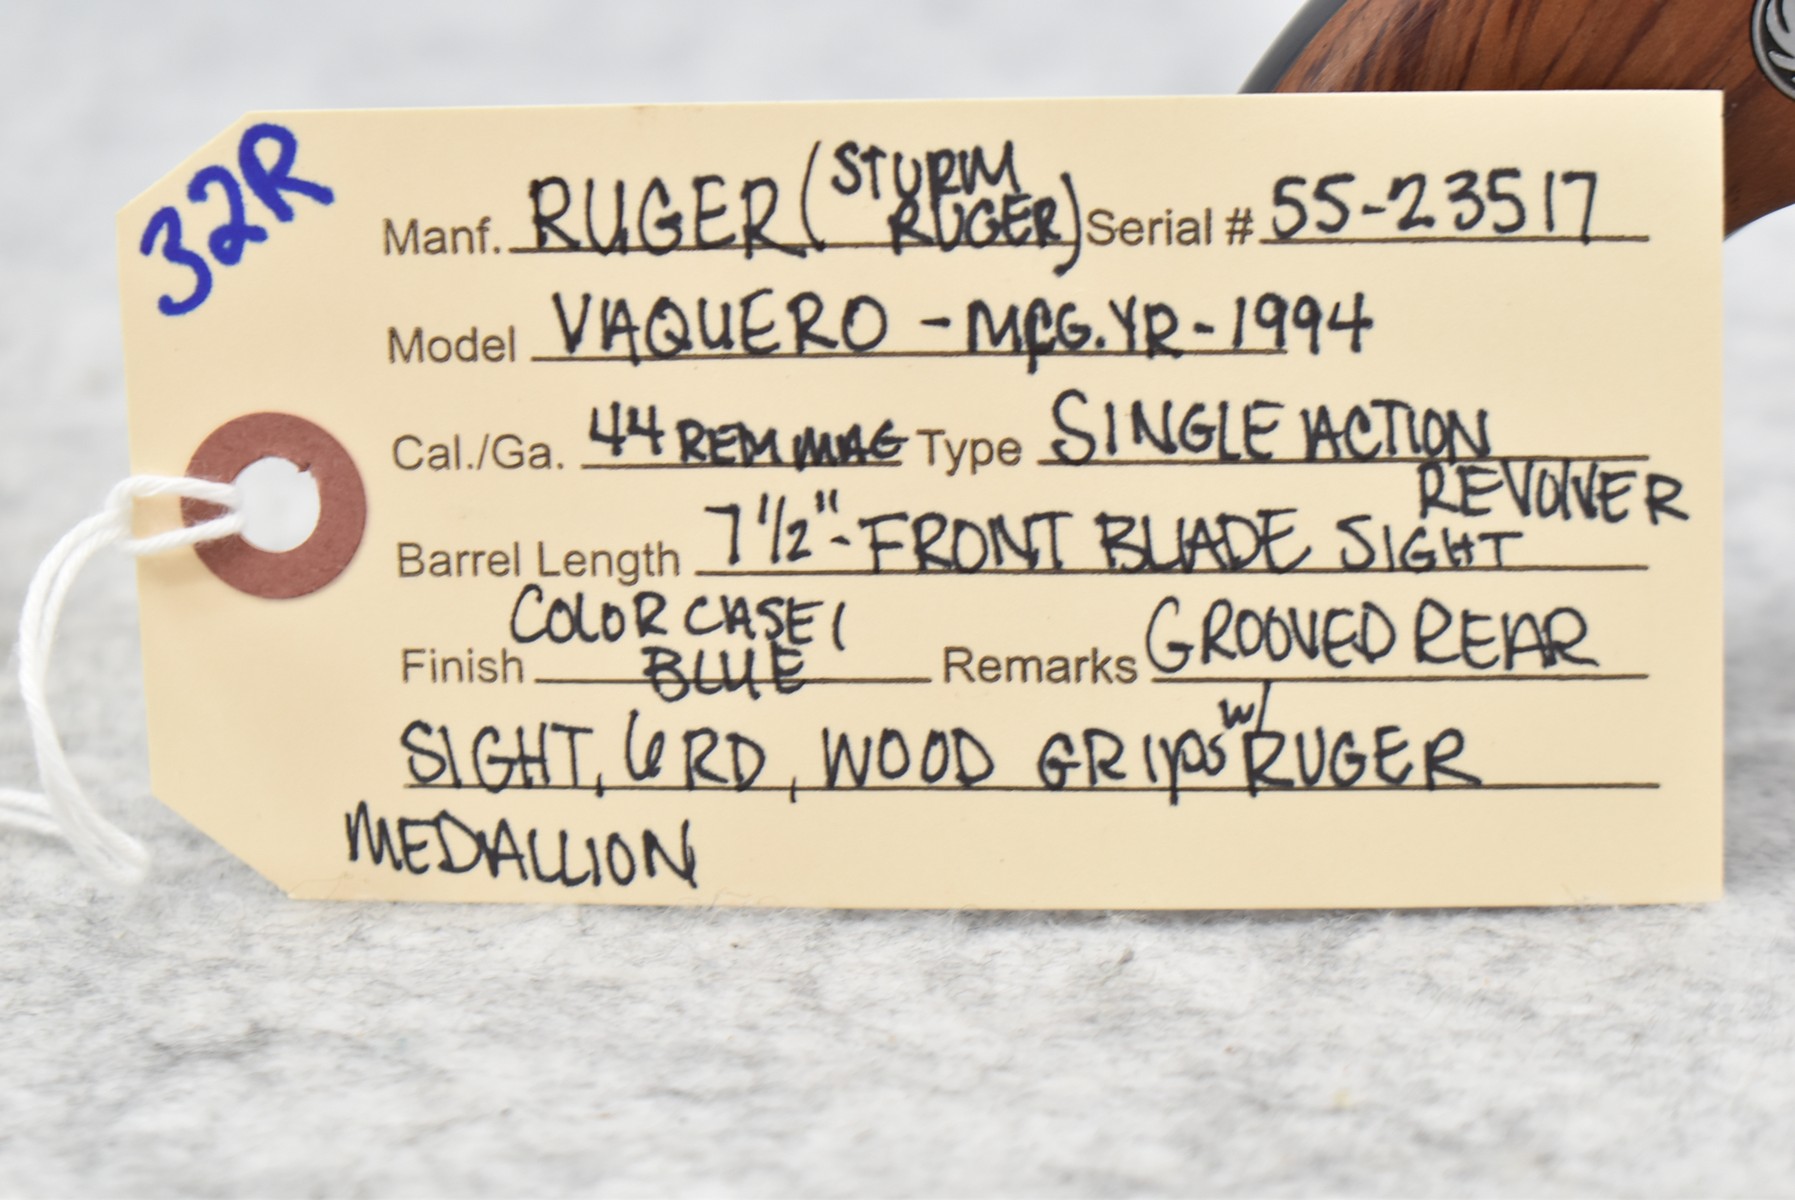 32R
Manf. RUGER (STURM RUGER) Serial # 55-23517
Model VAQUERO - MFG. YR - 1994
Cal./Ga. 44 REM MAG Type SINGLE ACTION REVOLVER
Barrel Length 7 1/2" - FRONT BLADE SIGHT
Finish COLOR CASE / BLUE Remarks GROOVED REAR
SIGHT, 6 RD, WOOD GRIPS w/ RUGER
MEDALLION